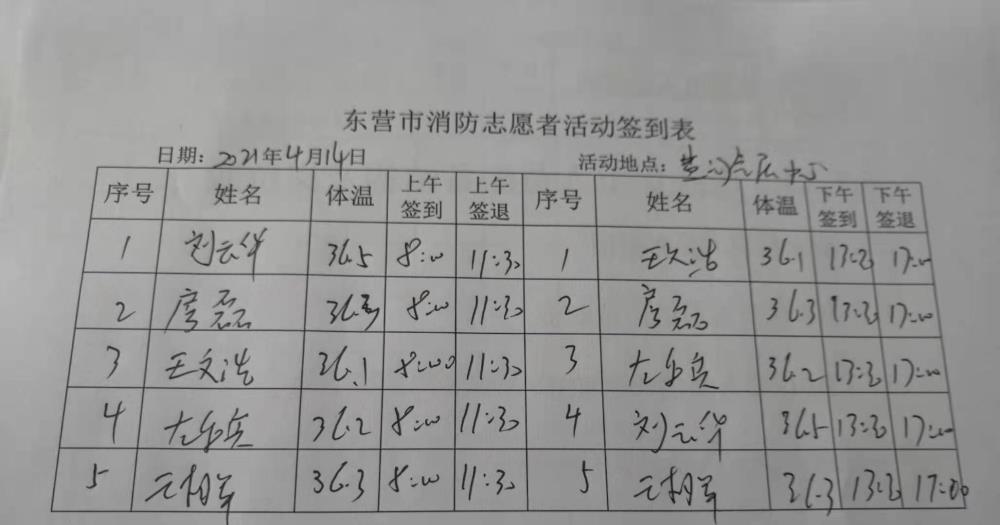 东营市消防志愿者活动签到表
日期：2021年4月14日 活动地点：
序号 姓名 体温 上午签到 上午签退 序号 姓名 体温 下午签到 下午签退
1 刘云华 36.5 8:00 11:30 1 王文浩 36.1 13:30 17:00
2 房磊 36.3 8:00 11:30 2 房磊 36.3 13:30 17:00
3 王文浩 36.1 8:00 11:30 3 36.2 13:30 17:00
4 36.2 8:00 11:30 4 刘云华 36.5 13:30 17:00
5 36.3 8:00 11:30 5 36.3 13:30 17:00